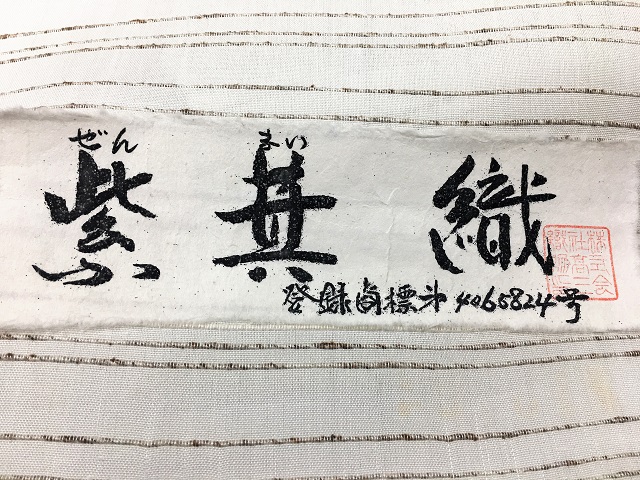 ぜん まい
紫萁織
登録商標第4065824号